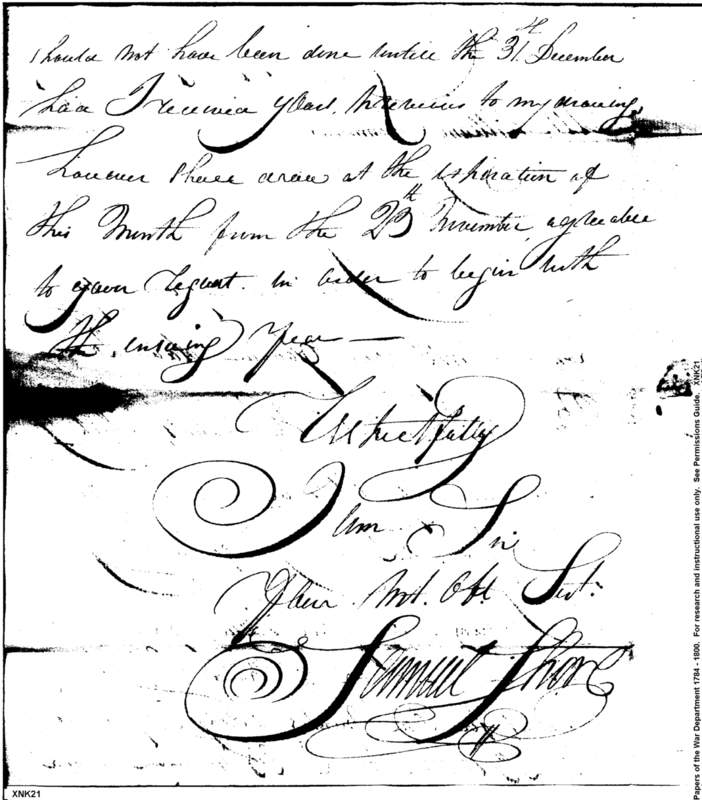 should not have been done untill the 31st December
had I received yours. previous to my drawing,
however shall draw at the expiration of
this Month from the 23th November agreeable
to your request. in order to begin with
the ensuing Year —
Respectfully
I am Sir
Your Mot. Obt. Sert.
Samuel
XNK21
Papers of the War Department 1784 - 1800. For research and instructional use only. See Permissions Guide. XNK21